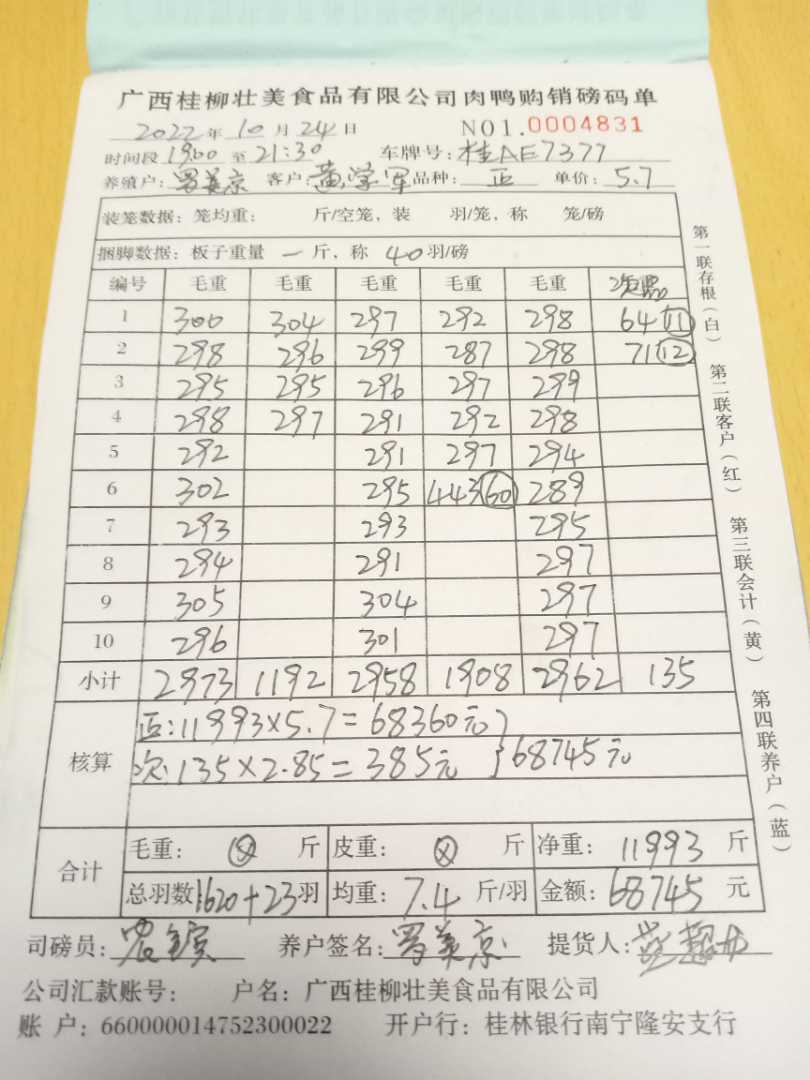 广西桂柳壮美食品有限公司肉鸭购销磅码单
2022年10月24日 NO1.0004831
时间段 1900 至 21:30 车牌号: 桂AE7377
养殖户: 罗美京 客户: 黄学军 品种: 正 单价: 5.7
装笼数据: 笼均重: 斤/空笼, 装 羽/笼, 称 笼/磅
捆脚数据: 板子重量 一 斤, 称 40 羽/磅
编号 毛重 毛重 毛重 毛重 毛重 次品
1 300 304 297 292 298 64 11
2 298 296 299 287 298 71 12
3 295 295 296 297 299
4 298 297 291 292 298
5 292 291 297 294
6 302 295 443 60 289
7 293 293 295
8 294 291 297
9 305 304 297
10 296 301 297
小计 2973 1192 2958 1908 2962 135
核算 正:11993×5.7=68360元}
次:135×2.85=385元 }68745元
合计 毛重: ⊗ 斤 皮重: ⊗ 斤 净重: 11993 斤
总羽数 1620+23 羽 均重: 7.4 斤/羽 金额: 68745 元
司磅员: 养户签名: 罗美京 提货人:
公司汇款账号: 户名: 广西桂柳壮美食品有限公司
账 户: 660000014752300022 开户行: 桂林银行南宁隆安支行
第一联存根(白)
第二联客户(红)
第三联会计(黄)
第四联养户(蓝)